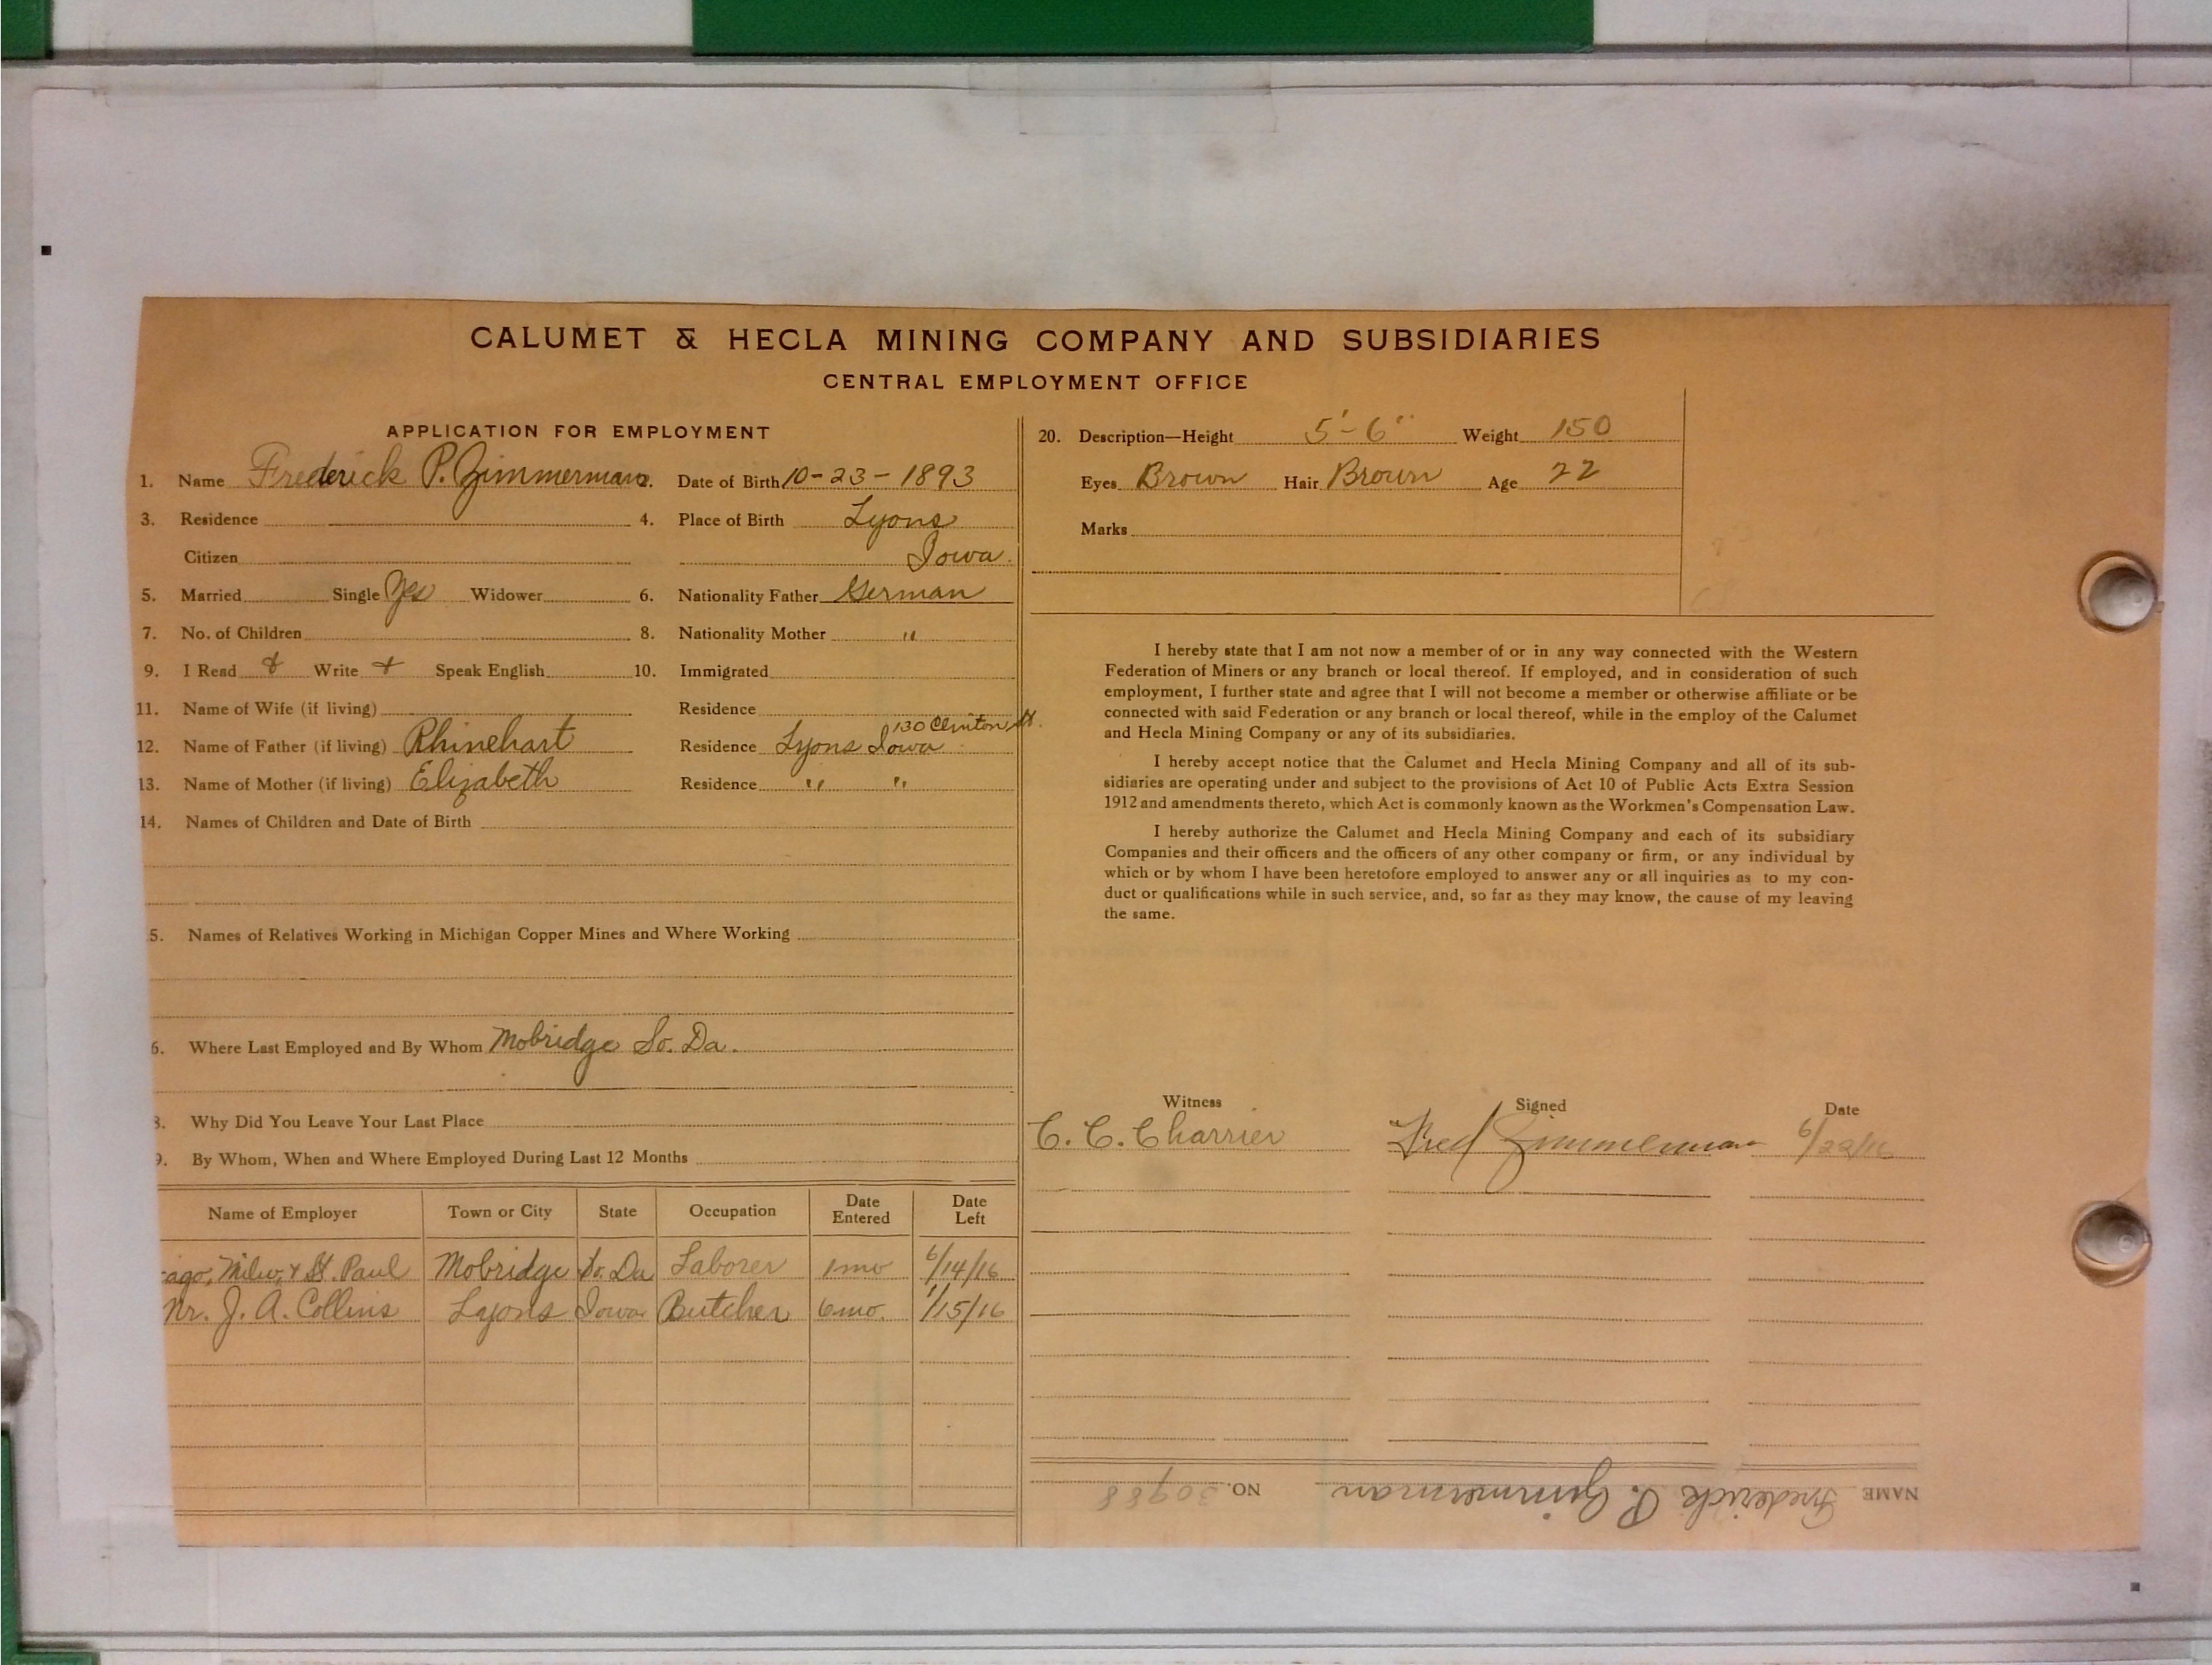 CALUMET & HECLA MINING COMPANY AND SUBSIDIARIES
CENTRAL EMPLOYMENT OFFICE
APPLICATION FOR EMPLOYMENT
1. Name Frederick P. Zimmerman 2. Date of Birth 10-23-1893
3. Residence 4. Place of Birth Lyons
Citizen Iowa.
5. Married Single Yes Widower 6. Nationality Father German
7. No. of Children 8. Nationality Mother "
9. I Read & Write + Speak English 10. Immigrated
11. Name of Wife (if living) Residence
130 Clinton St.
12. Name of Father (if living) Rhinehart Residence Lyons Iowa
13. Name of Mother (if living) Elizabeth Residence " "
14. Names of Children and Date of Birth
5. Names of Relatives Working in Michigan Copper Mines and Where Working
6. Where Last Employed and By Whom Mobridge So. Da.
8. Why Did You Leave Your Last Place
9. By Whom, When and Where Employed During Last 12 Months
Name of Employer Town or City State Occupation Date Entered Date Left
ago, Milw, & St. Paul Mobridge So. Da Laborer 1 mo 6/14/16
Mr. J. A. Collins Lyons Iowa Butcher 6 mo. 1/15/16
20. Description—Height 5'-6" Weight 150
Eyes Brown Hair Brown Age 22
Marks
I hereby state that I am not now a member of or in any way connected with the Western
Federation of Miners or any branch or local thereof. If employed, and in consideration of such
employment, I further state and agree that I will not become a member or otherwise affiliate or be
connected with said Federation or any branch or local thereof, while in the employ of the Calumet
and Hecla Mining Company or any of its subsidiaries.
I hereby accept notice that the Calumet and Hecla Mining Company and all of its sub-
sidiaries are operating under and subject to the provisions of Act 10 of Public Acts Extra Session
1912 and amendments thereto, which Act is commonly known as the Workmen's Compensation Law.
I hereby authorize the Calumet and Hecla Mining Company and each of its subsidiary
Companies and their officers and the officers of any other company or firm, or any individual by
which or by whom I have been heretofore employed to answer any or all inquiries as to my con-
duct or qualifications while in such service, and, so far as they may know, the cause of my leaving
the same.
Witness Signed Date
C. C. Charrier Fred Zimmerman 6/22/16
NAME Frederick P. Zimmerman NO. 30988